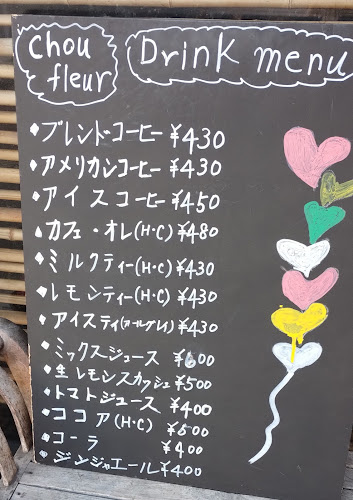 chou
fleur
Drink menu
◆ブレンドコーヒー ¥430
◆アメリカンコーヒー ¥430
◆アイスコーヒー ¥450
◆カフェ・オレ(H・C) ¥480
◆ミルクティー(H・C) ¥430
◆レモンティー(H・C) ¥430
◆アイスティ(アールグレイ) ¥430
◆ミックスジュース ¥600
◆生レモンスカッシュ ¥500
◆トマトジュース ¥400
◆ココア(H・C) ¥500
◆コーラ ¥400
◆ジンジャエール ¥400